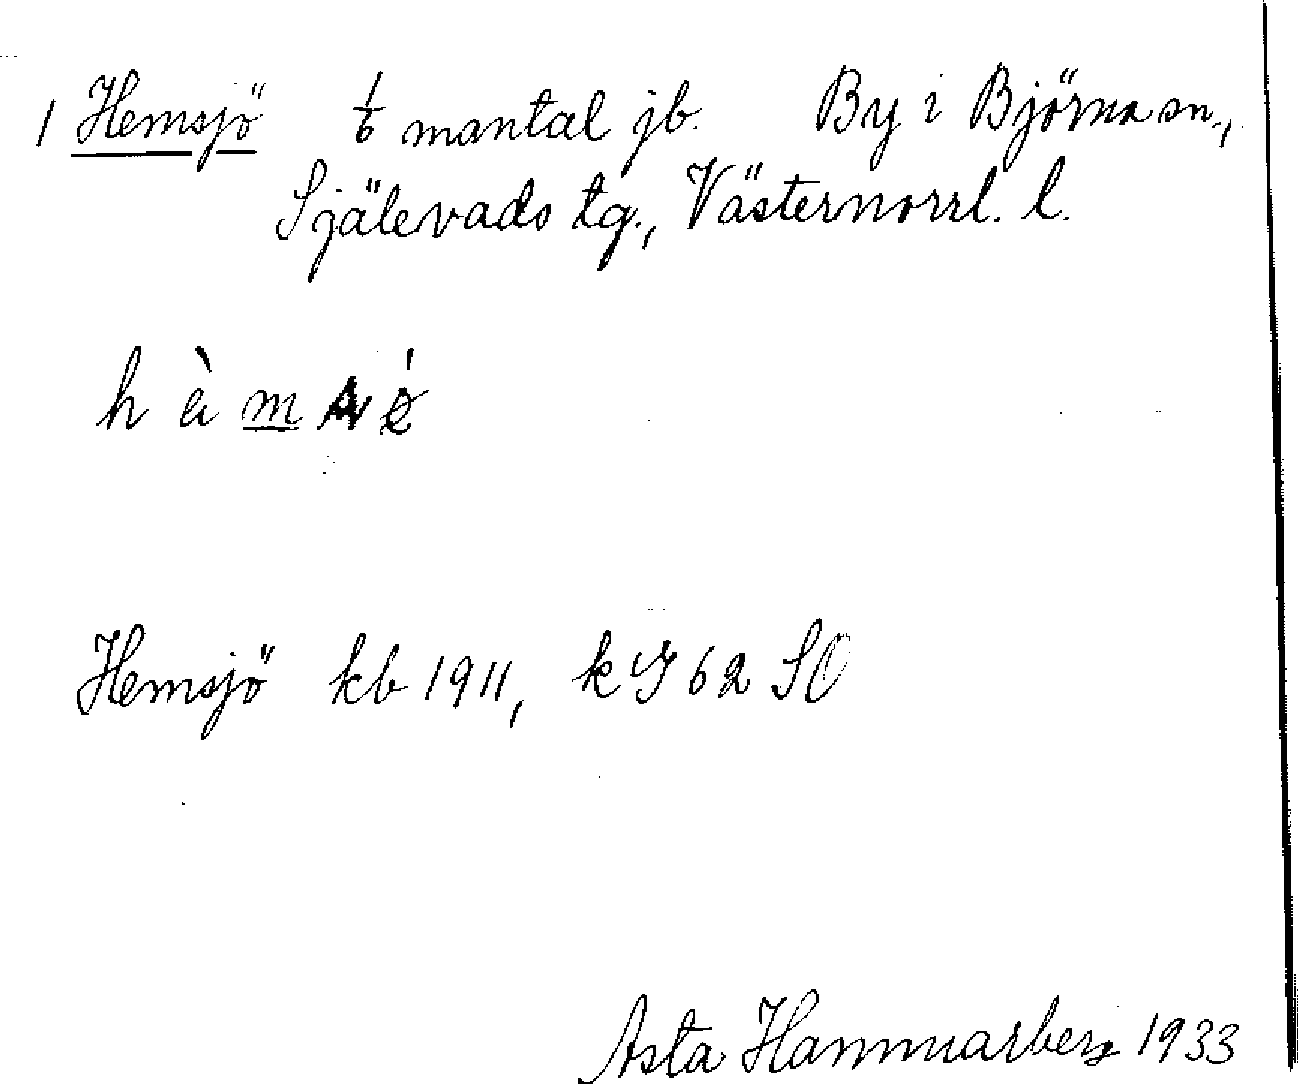 1 Hemsjö 1/6 mantal jb. By i Björna sn.,
Själevads tg., Västernorrl. l.
Hemsjö kb 1911, k G 62 SO
Asta Hammarberg 1933